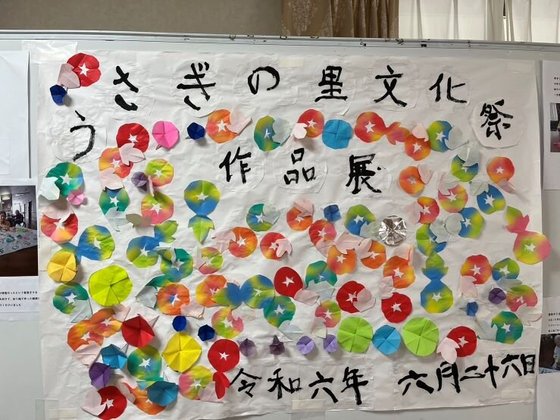 うさぎの里文化祭
作品展
令和六年 六月二十六日